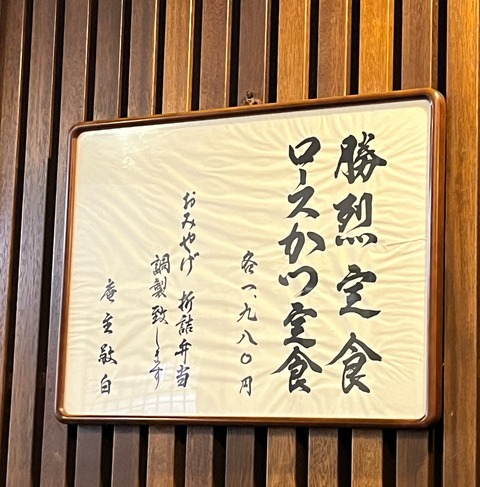 勝烈定食
ロースかつ定食
各一、九八〇円
おみやげ 折詰弁当
調製致します
庵主敬白